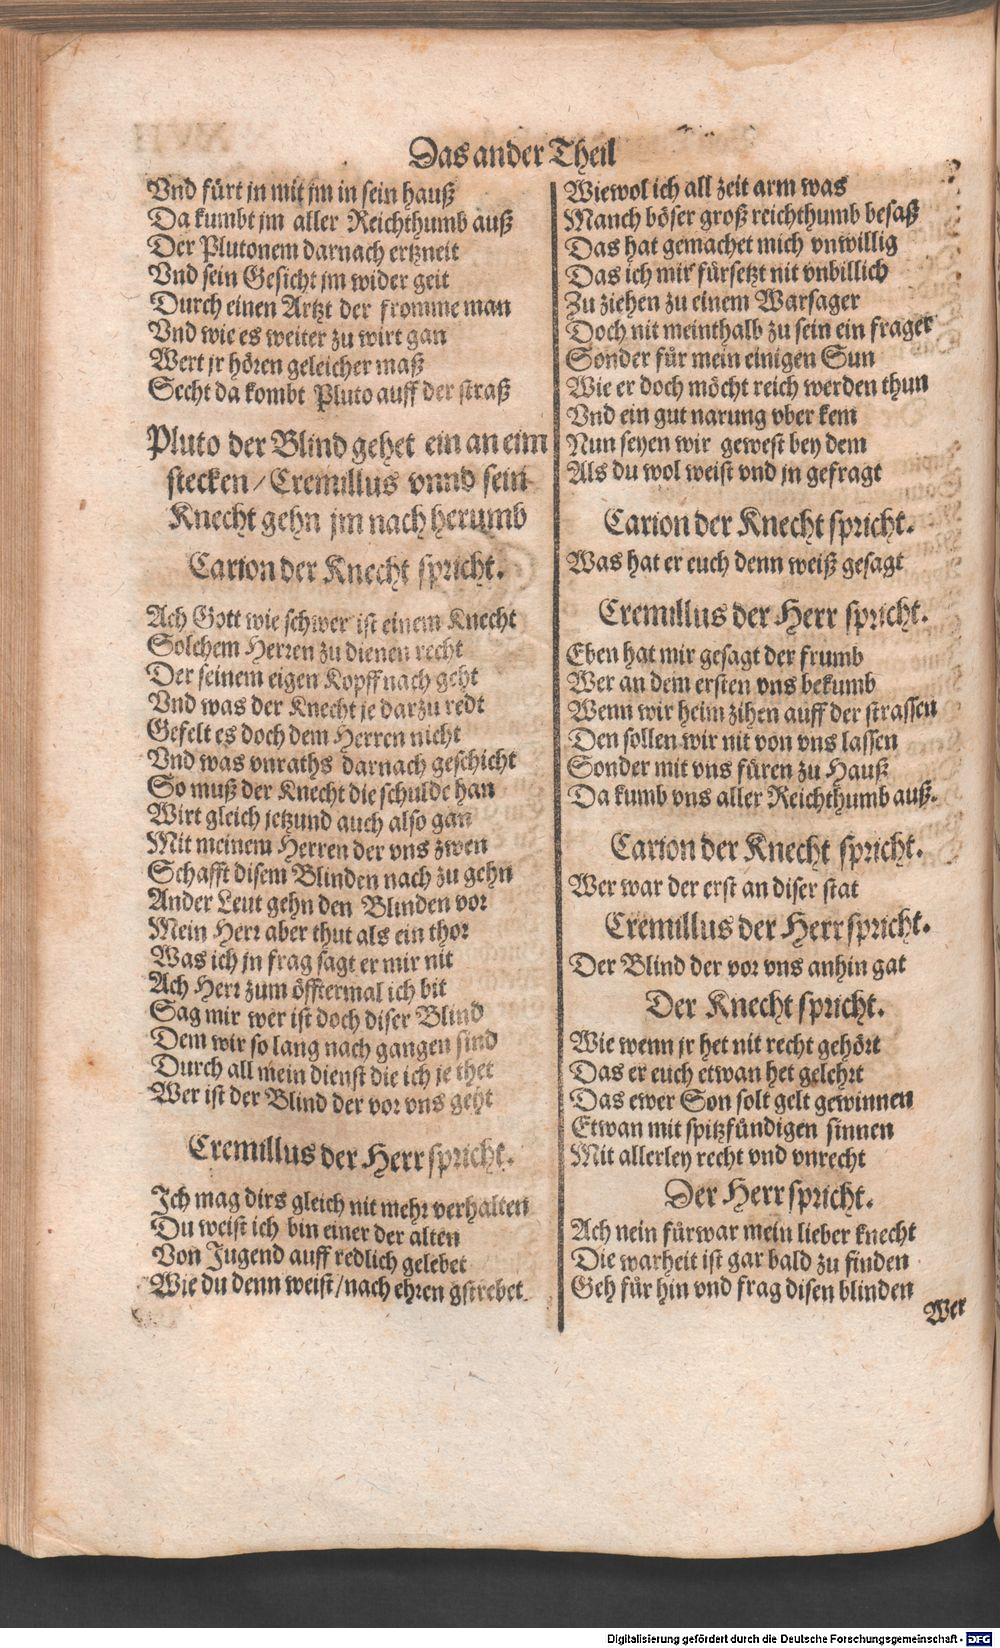 Das ander Theil
Vnd fürt jn mit jm in sein hauß
Da kumbt jm aller Reichthumb auß
Der Plutonem darnach ertzneit
Vnd sein Gesicht jm wider geit
Durch einen Artzt der fromme man
Vnd wie es weiter zu wirt gan
Wert jr hören geleicher maß
Secht da kombt Pluto auff der straß
Pluto der Blind gehet ein an eim
stecken / Cremillus vnnd sein
Knecht gehn jm nach herumb
Carion der Knecht spricht.
Ach Gott wie schwer ist einem Knecht
Solchem Herren zu dienen recht
Der seinem eigen Kopff nach geht
Vnd was der Knecht je darzu redt
Gefelt es doch dem Herren nicht
Vnd was vnraths darnach geschicht
So muß der Knecht die schulde han
Wirt gleich jetzund auch also gan
Mit meinem Herren der vns zwen
Schafft disem Blinden nach zu gehn
Ander Leut gehn den Blinden vor
Mein Herr aber thut als ein thor
Was ich jn frag sagt er mir nit
Ach Herr zum öfftermal ich bit
Sag mir wer ist doch diser Blind
Dem wir so lang nach gangen sind
Durch all mein dienst die ich je thet
Wer ist der Blind der vor vns geht
Cremillus der Herr spricht.
Ich mag dirs gleich nit mehr verhalten
Du weist ich bin einer der alten
Von Jugend auff redlich gelebet
Wie du denn weist / nach ehren gstrebet
Wiewol ich all zeit arm was
Manch böser groß reichthumb besaß
Das hat gemachet mich vnwillig
Das ich mir fürsetzt nit vnbillich
Zu ziehen zu einem Warsager
Doch nit meinthalb zu sein ein frager
Sonder für mein einigen Sun
Wie er doch möcht reich werden thun
Vnd ein gut narung vber kem
Nun seyen wir gewest bey dem
Als du wol weist vnd jn gefragt
Carion der Knecht spricht.
Was hat er euch denn weiß gesagt
Cremillus der Herr spricht.
Eben hat mir gesagt der frumb
Wer an dem ersten vns bekumb
Wenn wir heim zihen auff der strassen
Den sollen wir nit von vns lassen
Sonder mit vns füren zu Hauß
Da kumb vns aller Reichthumb auß.
Carion der Knecht spricht.
Wer war der erst an diser stat
Cremillus der Herr spricht.
Der Blind der vor vns anhin gat
Der Knecht spricht.
Wie wenn jr het nit recht gehört
Das er euch etwan het gelehrt
Das ewer Son solt gelt gewinnen
Etwan mit spitzfündigen sinnen
Mit allerley recht vnd vnrecht
Der Herr spricht.
Ach nein fürwar mein lieber knecht
Die warheit ist gar bald zu finden
Geh für hin vnd frag disen blinden
Wer
Digitalisierung gefördert durch die Deutsche Forschungsgemeinschaft - DFG